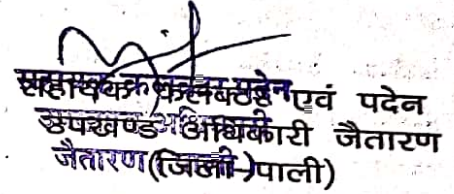 सहायक कलक्टर एवं पदेन
उपखण्ड अधिकारी जैतारण
जैतारण (जिला-पाली)